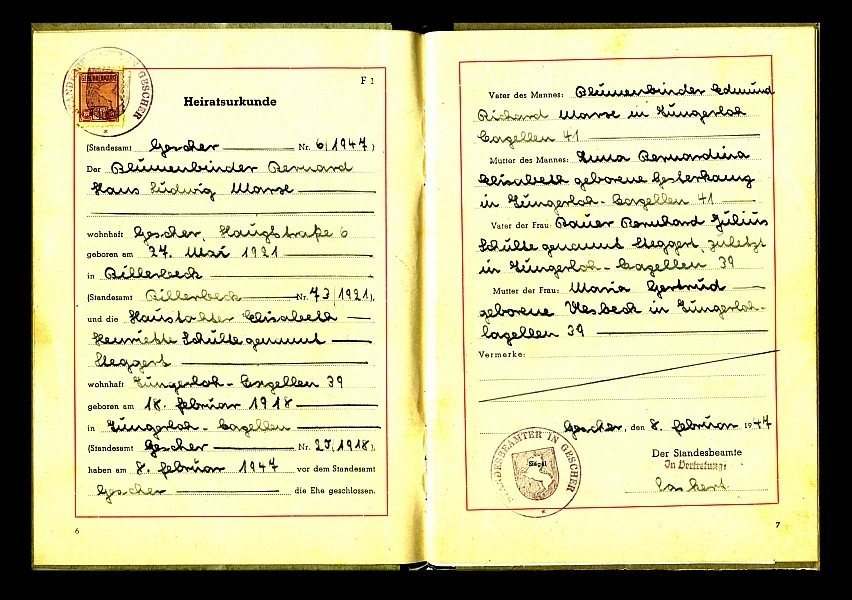 F 1
Heiratsurkunde
(Standesamt Gescher Nr. 6/1947)
Der Blumenbinder Bernard
Hans Ludwig
wohnhaft Gescher, Hauptstraße 6
geboren am 27. Mai 1921
in Billerbeck
(Standesamt Billerbeck Nr. 73/1921),
und die Haustochter Elisabeth
Henriette Schulte genannt
Steggert
wohnhaft 39
geboren am 18. Februar 1918
in
(Standesamt Gescher Nr. 27/1918),
haben am 8. Februar 1947 vor dem Standesamt
Gescher die Ehe geschlossen.
6
Vater des Mannes: Blumenbinder Edmund
Richard in
41
Mutter des Mannes: Anna Bernardina
Elisabeth geborene
in 41
Vater der Frau: Bauer Bernhard Julius
Schulte genannt Steggert, zuletzt
in 39
Mutter der Frau: Maria Gertrud
geborene in
39
Vermerke:
Gescher, den 8. Februar 1947
STANDESBEAMTER IN GESCHER
Siegel
Der Standesbeamte
In Vertretung:
7